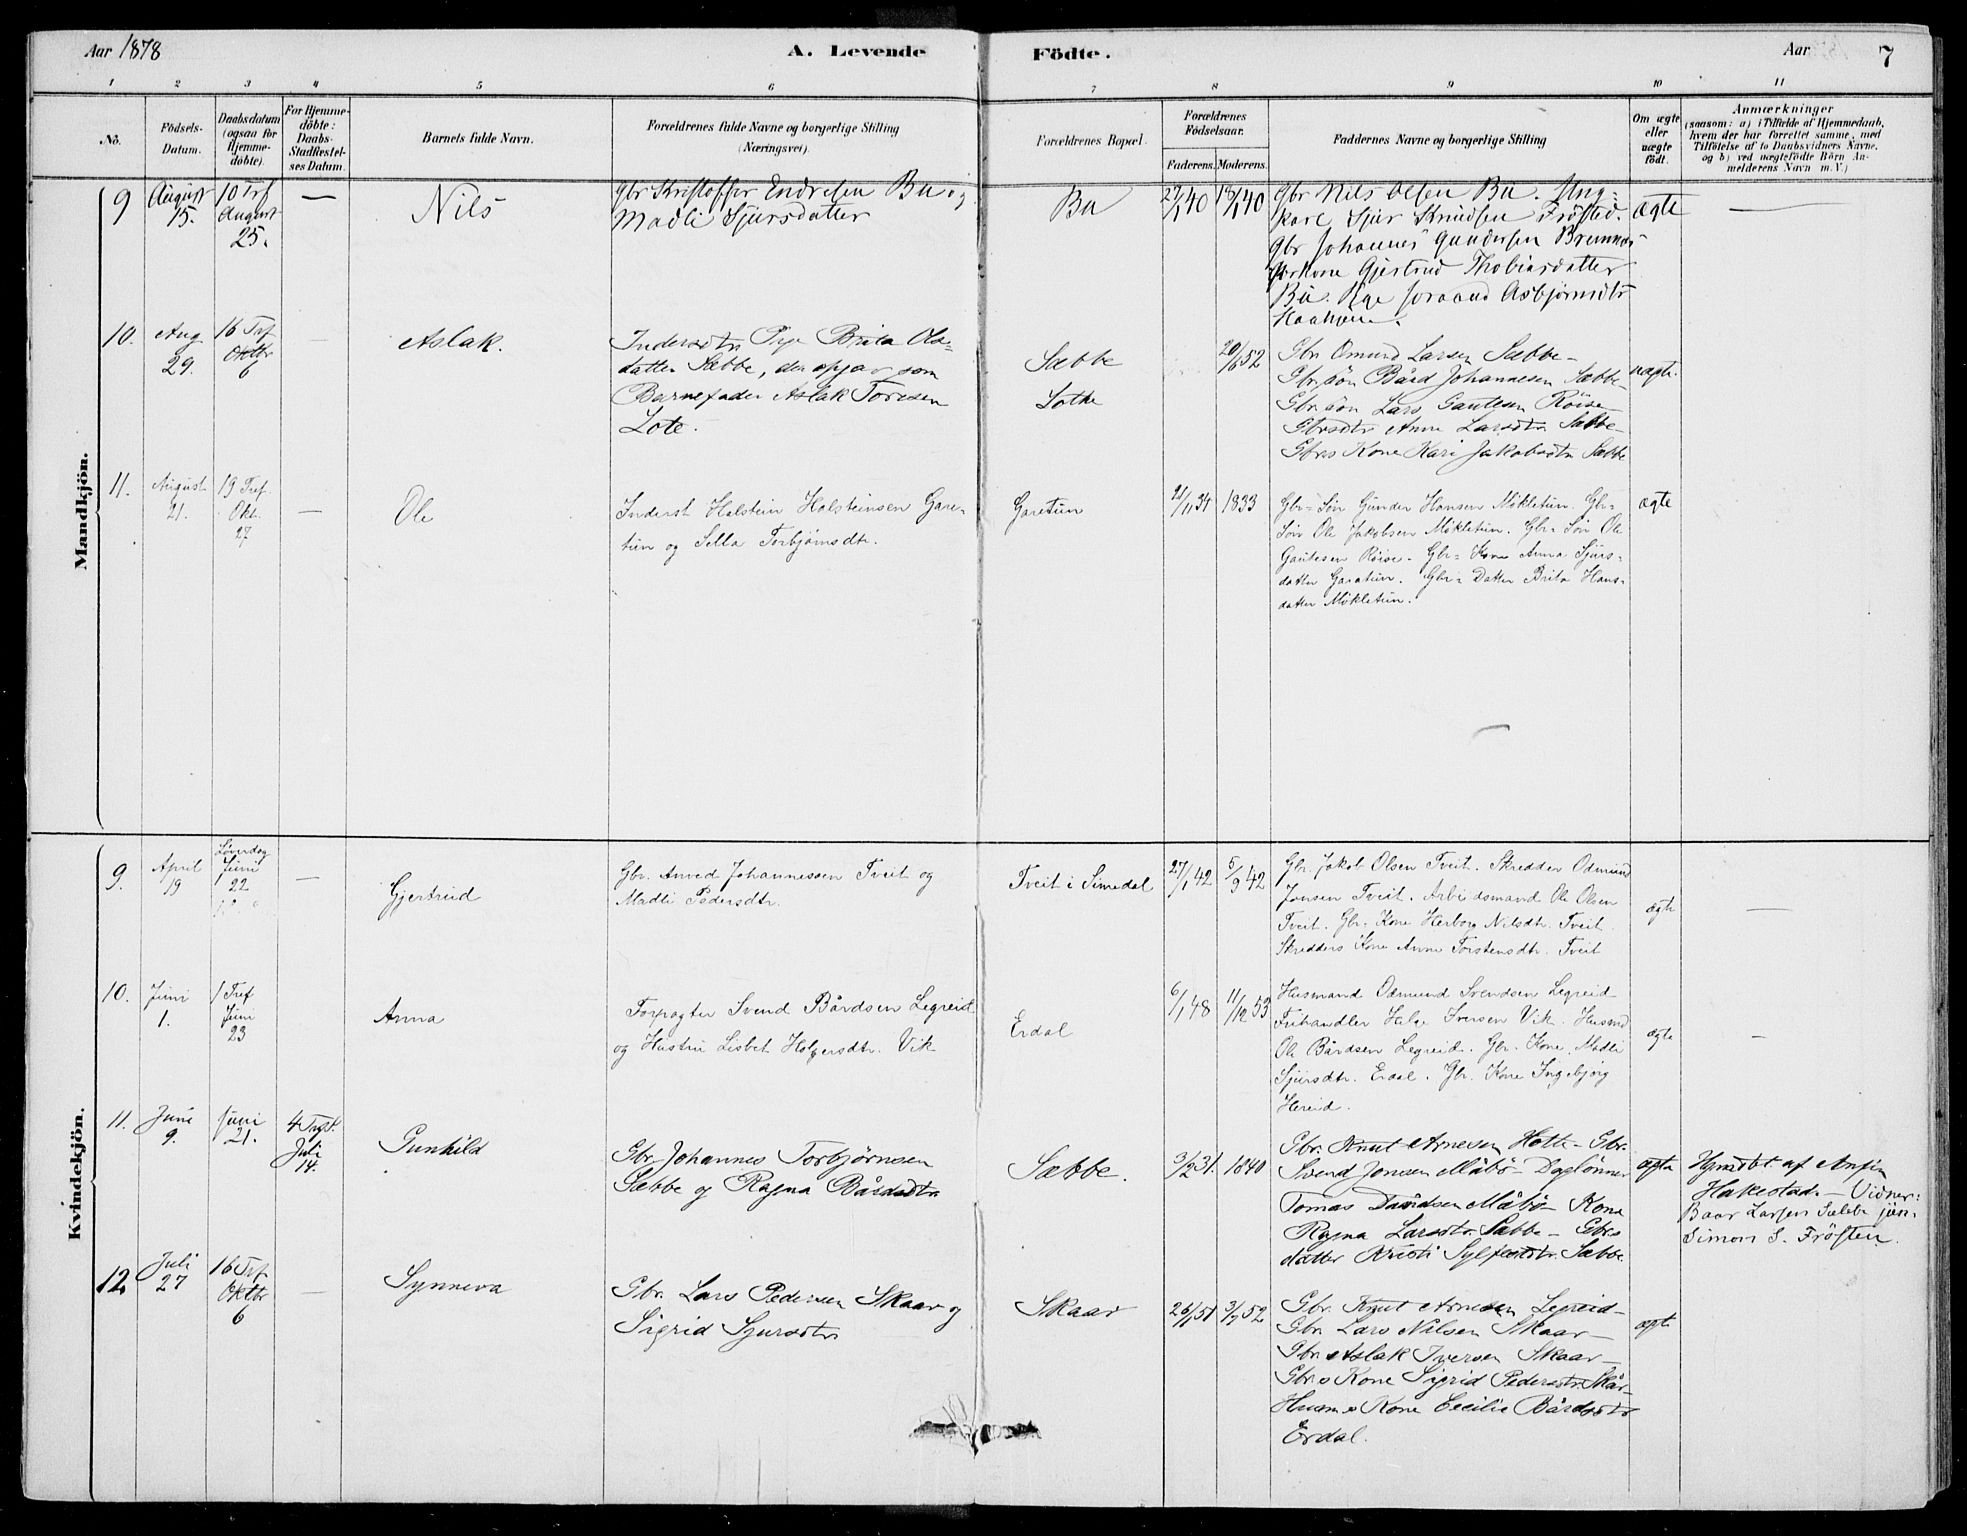 Aar 1878
A. Levende Födte.
Aar 7
1 2 3 4 5 6 7 8 9 10 11
No.
Födsels-Datum.
Daabsdatum (ogsaa for Hjemme-döbte).
For Hjemme-döbte: Daabs-Stadfæstel-ses Datum.
Barnets fulde Navn.
Forældrenes fulde Navne og borgerlige Stilling (Næringsvei).
Forældrenes Bopæl.
Forældrenes Födselsaar.
Faderens. Moderens.
Faddernes Navne og borgerlige Stilling
Om ægte eller uægte födt.
Anmærkninger
(saasom: a) i Tilfælde af Hjemmedaab,
hvem der har forrettet samme, med
Tilföielse af to Daabsvidners Navne,
og b) ved uægtefödte Börn An-
melderens Navn m. V.)
Mandkjön.
9 August 15. 10 Trf August 25. — Nils
Gbr Kristoffer Endresen Bu og
Madli Sjursdatter
Bu
27/1 40
Gbr Nils Olsen Bu. Ung-
karl Sjur Knudsen Fröfted.
Gbr Johannes Gundersen Bremnes
Gbrkone Gjertrud Thobiasdatter
Bu. Pige Asbjørnsdtr
ægte —
10. Aug 29. 16 Trf Oktbr 6 — Aslak.
Inderstdtr Pige Brita Ols-
datter Sæbbe, der opgav som
Barnefader Aslak Toresen
Lote.
Sæbbe
Lothe
20/6 52
Gbr. Omund Larsen Sæbbe —
Gbr. sön Bård Johannesen Sæbbe —
Gbr. sön Lars Gautesen Röise —
Gbrsdtr Anna Larsdtr Sæbbe —
Gbrs Kone Kari Jakobsdtr Sæbbe
uægte.
11. August 21. 19 Tref. Okt. 27 — Ole
Inderst Halstein Halsteinsen Gare-
tun og Sella Torbjørnsdtr.
Garetun
21/11 34 1833
Gbr- Søn Gunder Hansen Møkletun. Gbr-
Søn Ole Jakobsen Møkletun. Gbr- Søn Ole
Gautesen Røise. Gbr- Kone Anna Sjurs-
datter Garatun. Gbr- Datter Brita Hans-
datter Møkletun.
ægte
Kvindekjön.
9. April 19 Løverdag Juni 22 — Gjertrud
Gbr. Anved Johannessen Tveit og
Madli Pedersdtr.
Tveit i Simedal
27/1 42 5/9 42
Gbr. Jakob Olsen Tveit. Skredder Odmund
Jonsen Tveit. Arbeidsmand Ole Olsen
Tveit. Gbr- Kone Herborg Nilsdtr. Tveit.
Skredders Kone Anna Torstensdtr. Tveit
ægte —
10. Juni 1. 1 Tref Juni 23 Anna
Forpagter Svend Bårdsen Legreid
og Hustru Lisbet Holgersdtr. Vik
Erdal
6/1 48 11/12 53
Husmand Odmund Svendsen Legreid
Frihandler Helge Iversen Vik. Husmd
Ole Bårdsen Legreid. Gbr. Kone Madli
Sjursdtr. Erdal. Gbr. Kone Ingebjørg
Hereid.
ægte —
11. Juni 9. Juni 21. 4 Trgt. Juli 14. Gunhild
Gbr. Johannes Torbjørnsen
Sæbbe og Ragna Bårdsdtr
Sæbbe.
3/2 31. 1840
Gbr. Knut Arnesen Hotle — Gbr.
Svend Jonsen Måbö — Daglönner
Tomas Davidsen Måbö — Kone
Ragna Larsdtr. Sæbbe — Gbrs
datter Kristi Sylfestdtr. Sæbbe.
ægte
Hjmdbt. af Anfin
Hakestad. — Vidner:
Baar Larsen Sæbbe jun.
Simon S. Fröften.
12. Juli 27 16 Trf Oktbr 6 — Synneva
Gbr. Lars Pedersen Skaar og
Sigrid Sjursdtr
Skaar
26/1 51 3/7 52
Gbr. Knut Arnesen Legreid —
Gbr. Lars Nilsen Skaar —
Gbr. Aslak Iversen Skaar —
Gbr.s Kone Sigrid Pedersdtr. Skår —
Husm.s Kone Cecilie Bårdsdtr
Erdal.
ægte